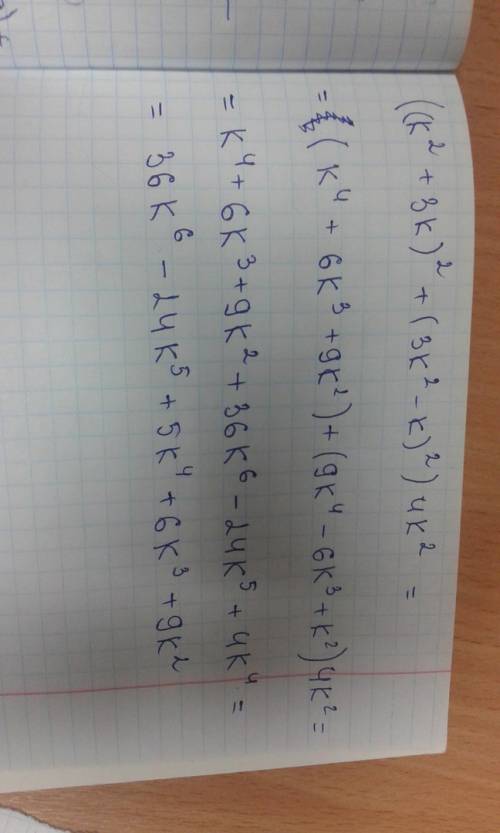 ((k² + 3k)² + (3k² - k)²) 4k² =
= (k⁴ + 6k³ + 9k²) + (9k⁴ - 6k³ + k²) 4k² =
= k⁴ + 6k³ + 9k² + 36k⁶ - 24k⁵ + 4k⁴ =
= 36k⁶ - 24k⁵ + 5k⁴ + 6k³ + 9k²